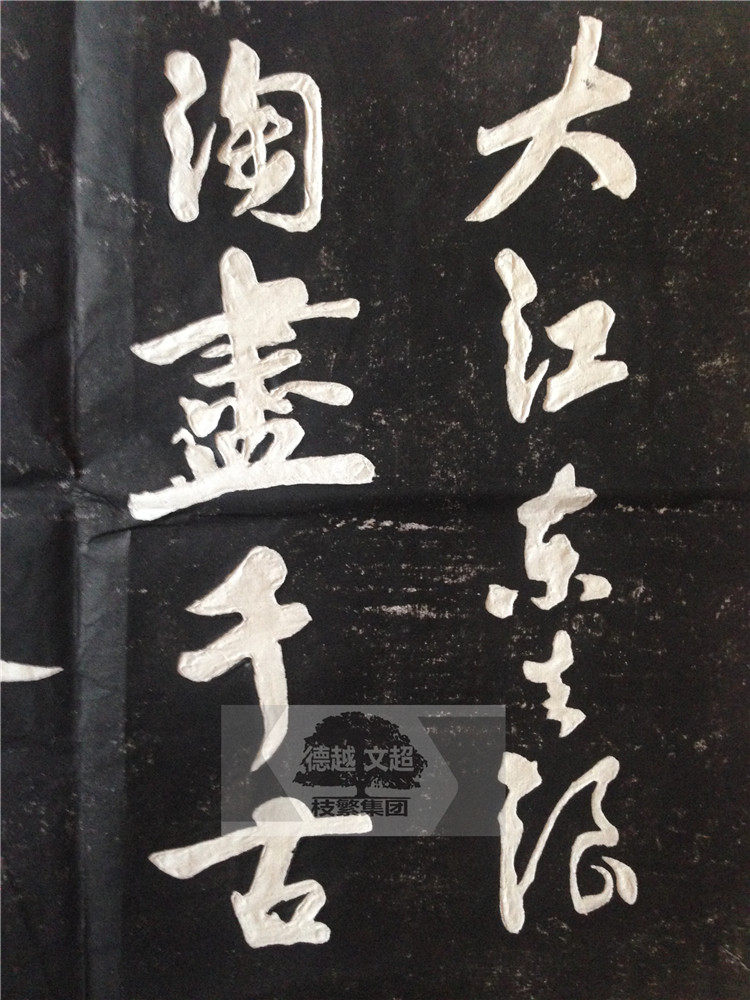 大江东去浪
淘盡千古
德越 文超
枝繁集团